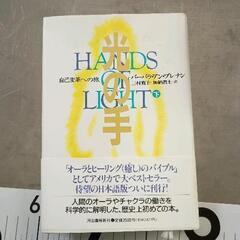 自己変革への旅
HANDS
OF
LIGHT
光の手
下
バーバラ・アン・ブレナン
三村寛子＋加納眞士＝訳
「オーラとヒーリング(癒し)のバイブル」
としてアメリカで大ベストセラー。
待望の日本語版ついに刊行!
人間のオーラやチャクラの働きを
科学的に解明した、歴史上初めての本。
河出書房新社
6
9